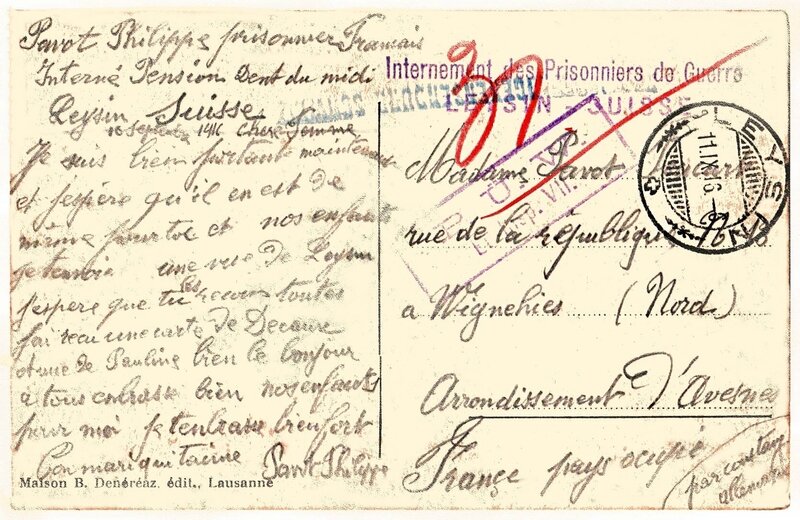 Pavot Philippe prisonnier Francais
Interné Pension Dent du midi
Leysin Suisse
10 1916 Chere femme
Je suis bien portant maintenant
et j'espère qu'il en est de
même pour toi et nos enfants
je tenvoie une vue de Leysin
j'espere que tu les recois toutes
j'ai recu une carte de
et une de Pauline bien le bonjour
à tous embrasse bien nos enfants
pour moi je tembrasse bien fort
Ton mari qui taime Pavot Philippe
Maison B. Denéréaz, édit., Lausanne
Internement des Prisonniers de Guerre
LEYSIN - SUISSE
37
LEYSIN
11.IX.16
Madame Pavot
rue de la république, No
a Wignehies (Nord)
Arrondissement D'Avesnes
France pays occupé
par
allemande